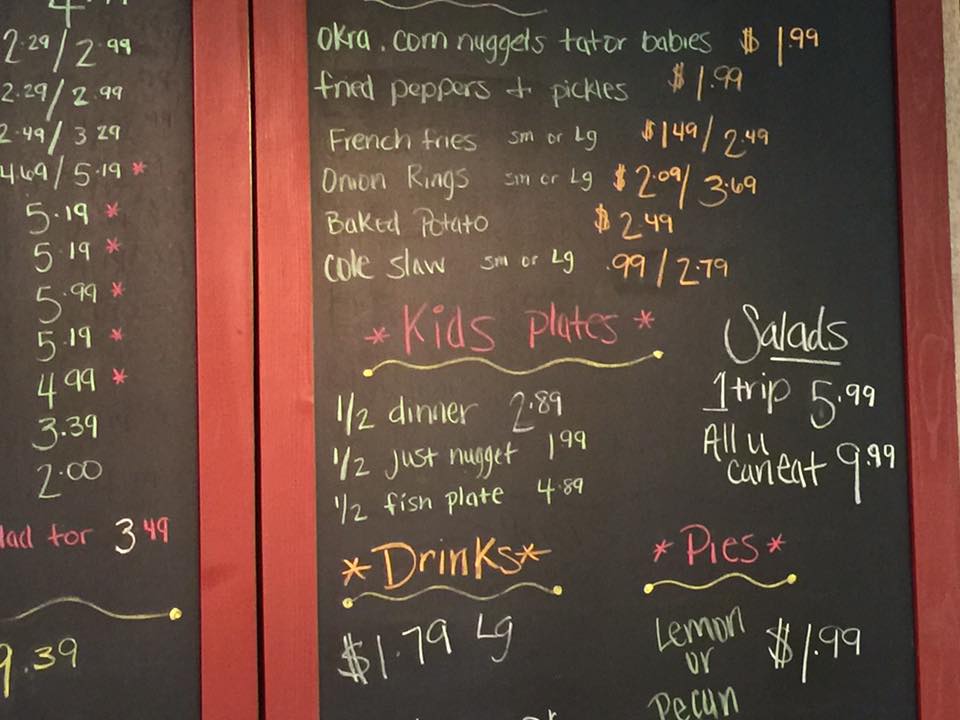 2.29/2.99
2.29/2.99
2.49/3 29
4.69/5.19 *
5.19 *
5.19 *
5.99 *
5.19 *
4.99 *
3.39
2.00
lad for 3 49
9.39
okra. corn nuggets tator babies $ 1.99
fried peppers + pickles $1.99
French fries sm or Lg $1 49/2.49
Onion Rings sm or Lg $2.09/3.69
Baked Potato $2.49
cole slaw sm or Lg .99/2.79
*Kids plates*
1/2 dinner 2.89
1/2 just nugget 1 99
1/2 fish plate 4.89
Salads
1 trip 5.99
All u
can eat 9.99
*Drinks*
$1.79 Lg
*Pies*
Lemon
or $1.99
Pecan